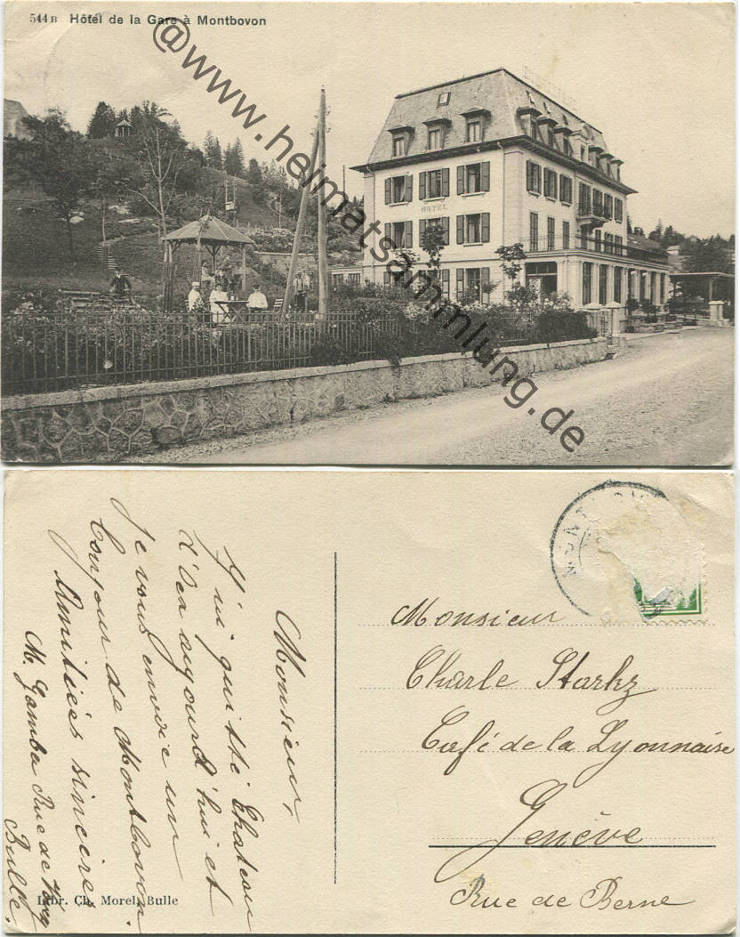 544 B Hôtel de la Gare à Montbovon
HOTEL
@www.heimatsammlung.de
Monsieur,
J'ai quitté Chateau
d'Oex aujourd'hui et
je vous envoie un
bonjour de Montbovon.
Amitiés sincères
M. Gamba Rue de
Bulle.
Libr. Ch. Morel, Bulle
MONT
Monsieur
Charle Starkz
Café de la Lyonnaise
Genève
Rue de Berne